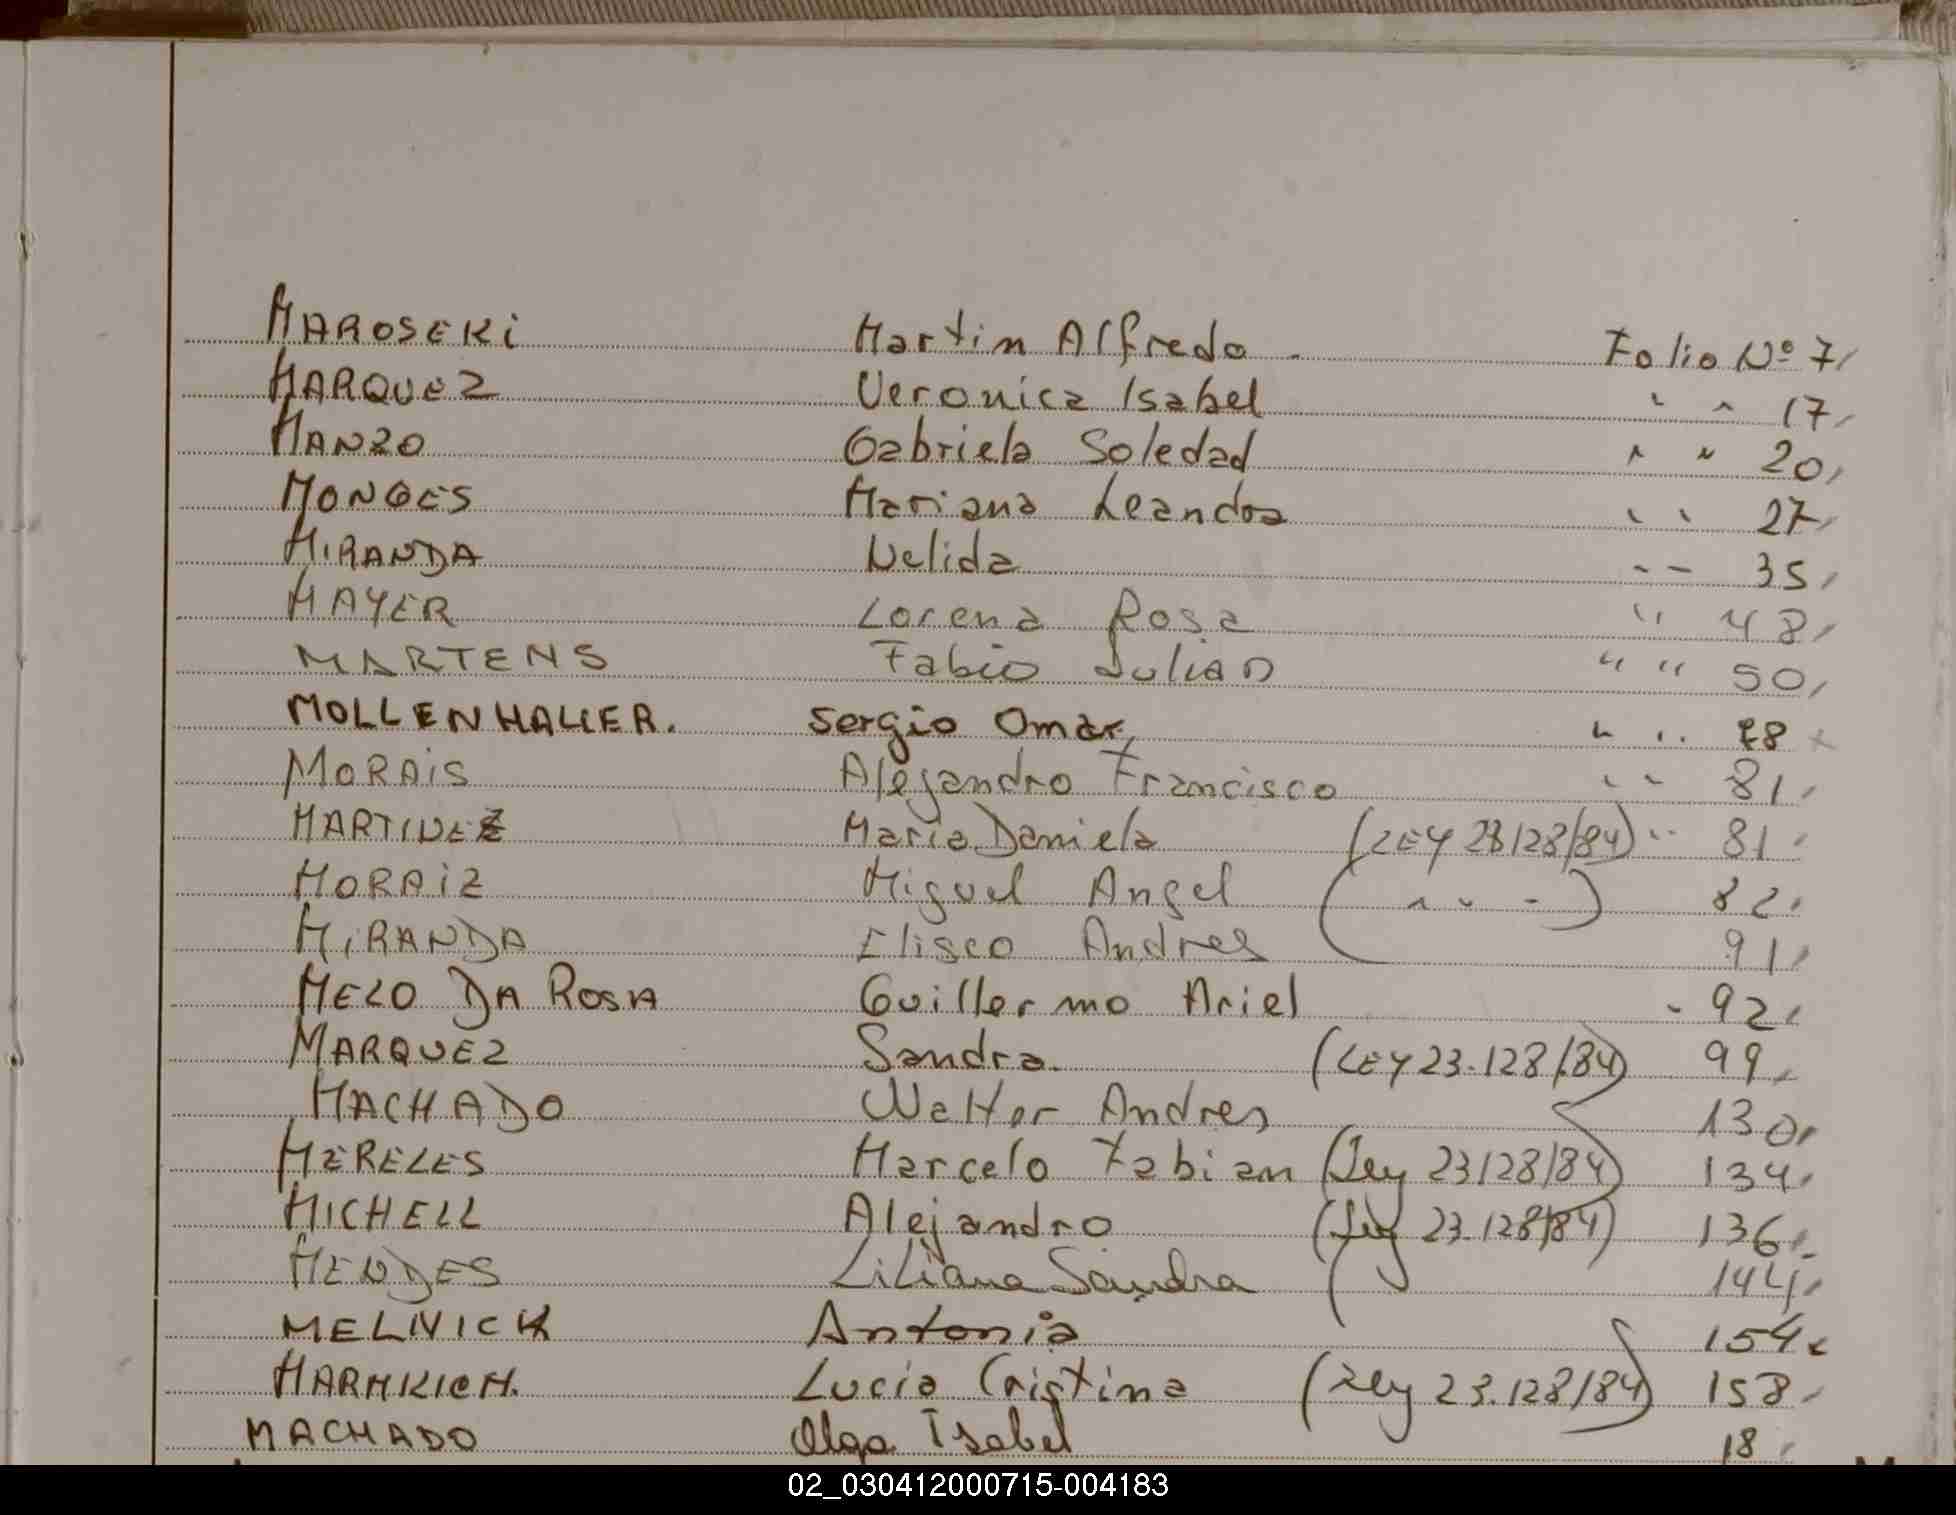 MAROSEKi Martin Alfredo Folio Nº 7
MARQUEZ Veronica Isabel " " 17
MANZO Gabriela Soledad " " 20
MONGES Mariana Leandra " " 27
MIRANDA Nelida " " 35
MAYER Lorena Rosa " 48
MARTENS Fabio Julian " " 50
MOLLENHAUER. Sergio Omar " " 78
MORAiS Alejandro Francisco " " 81
MARTINEZ Maria Daniela (LEY 23128/84) " 81
MORAiZ Miguel Angel ( " " " ) 82
MIRANDA Eliseo Andres 91
MELO DA ROSA Guillermo Ariel " 92
MARQUEZ Sandra. (LEY 23.128/84) 99
MACHADO Walter Andres 130
MERELES Marcelo Fabian (Ley 23128/84) 134
MICHELL Alejandro (Ley 23.128/84) 136
MENDES Liliana Sandra 144
MELNICK Antonia 154
Lucia Cristina (Ley 23.128/84) 158
MACHADO Olga Isabel 18
02_030412000715-004183